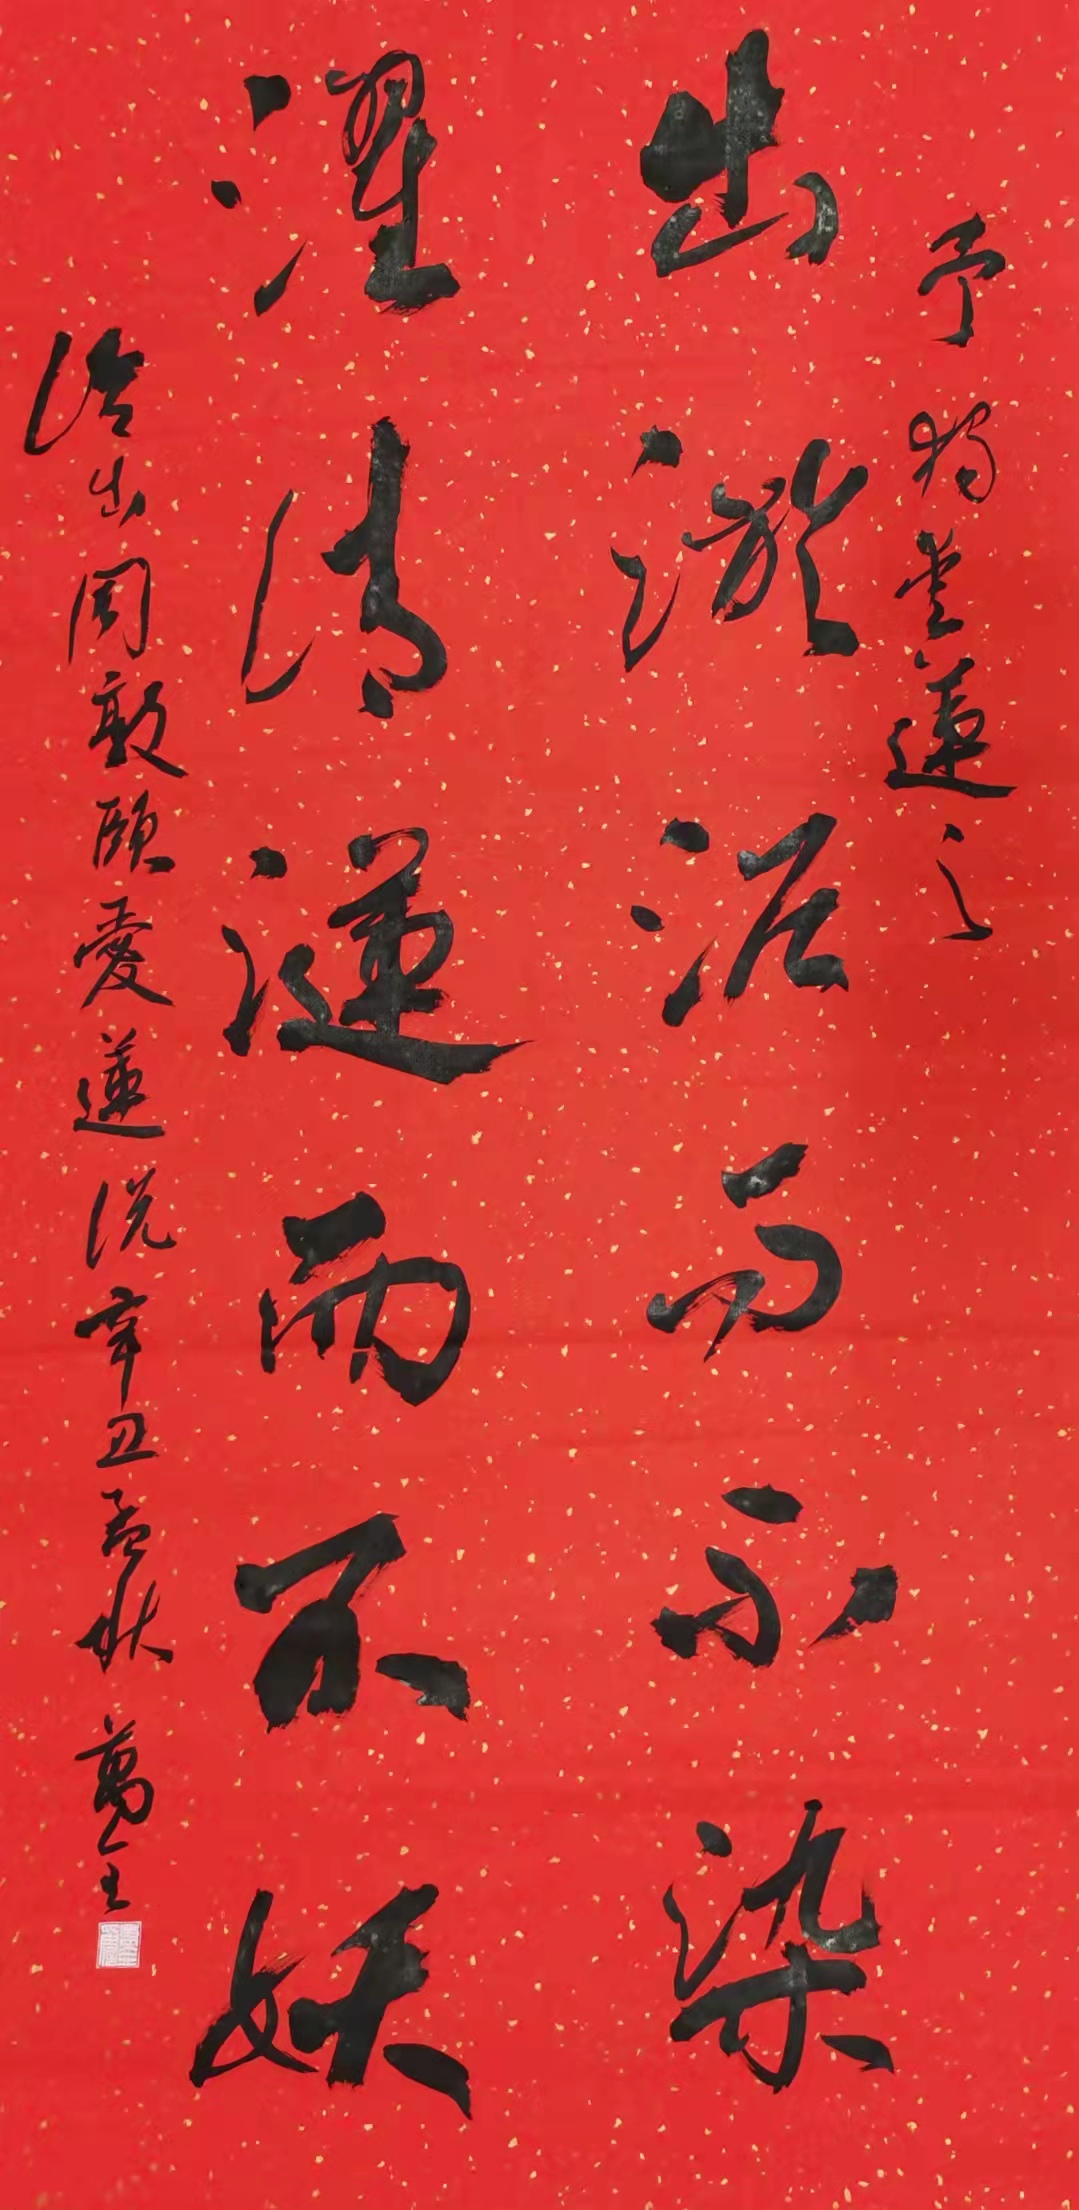 予獨爱蓮之
出淤泥而不染
濯清漣而不妖
语出周敦頤愛蓮说辛丑孟秋萬